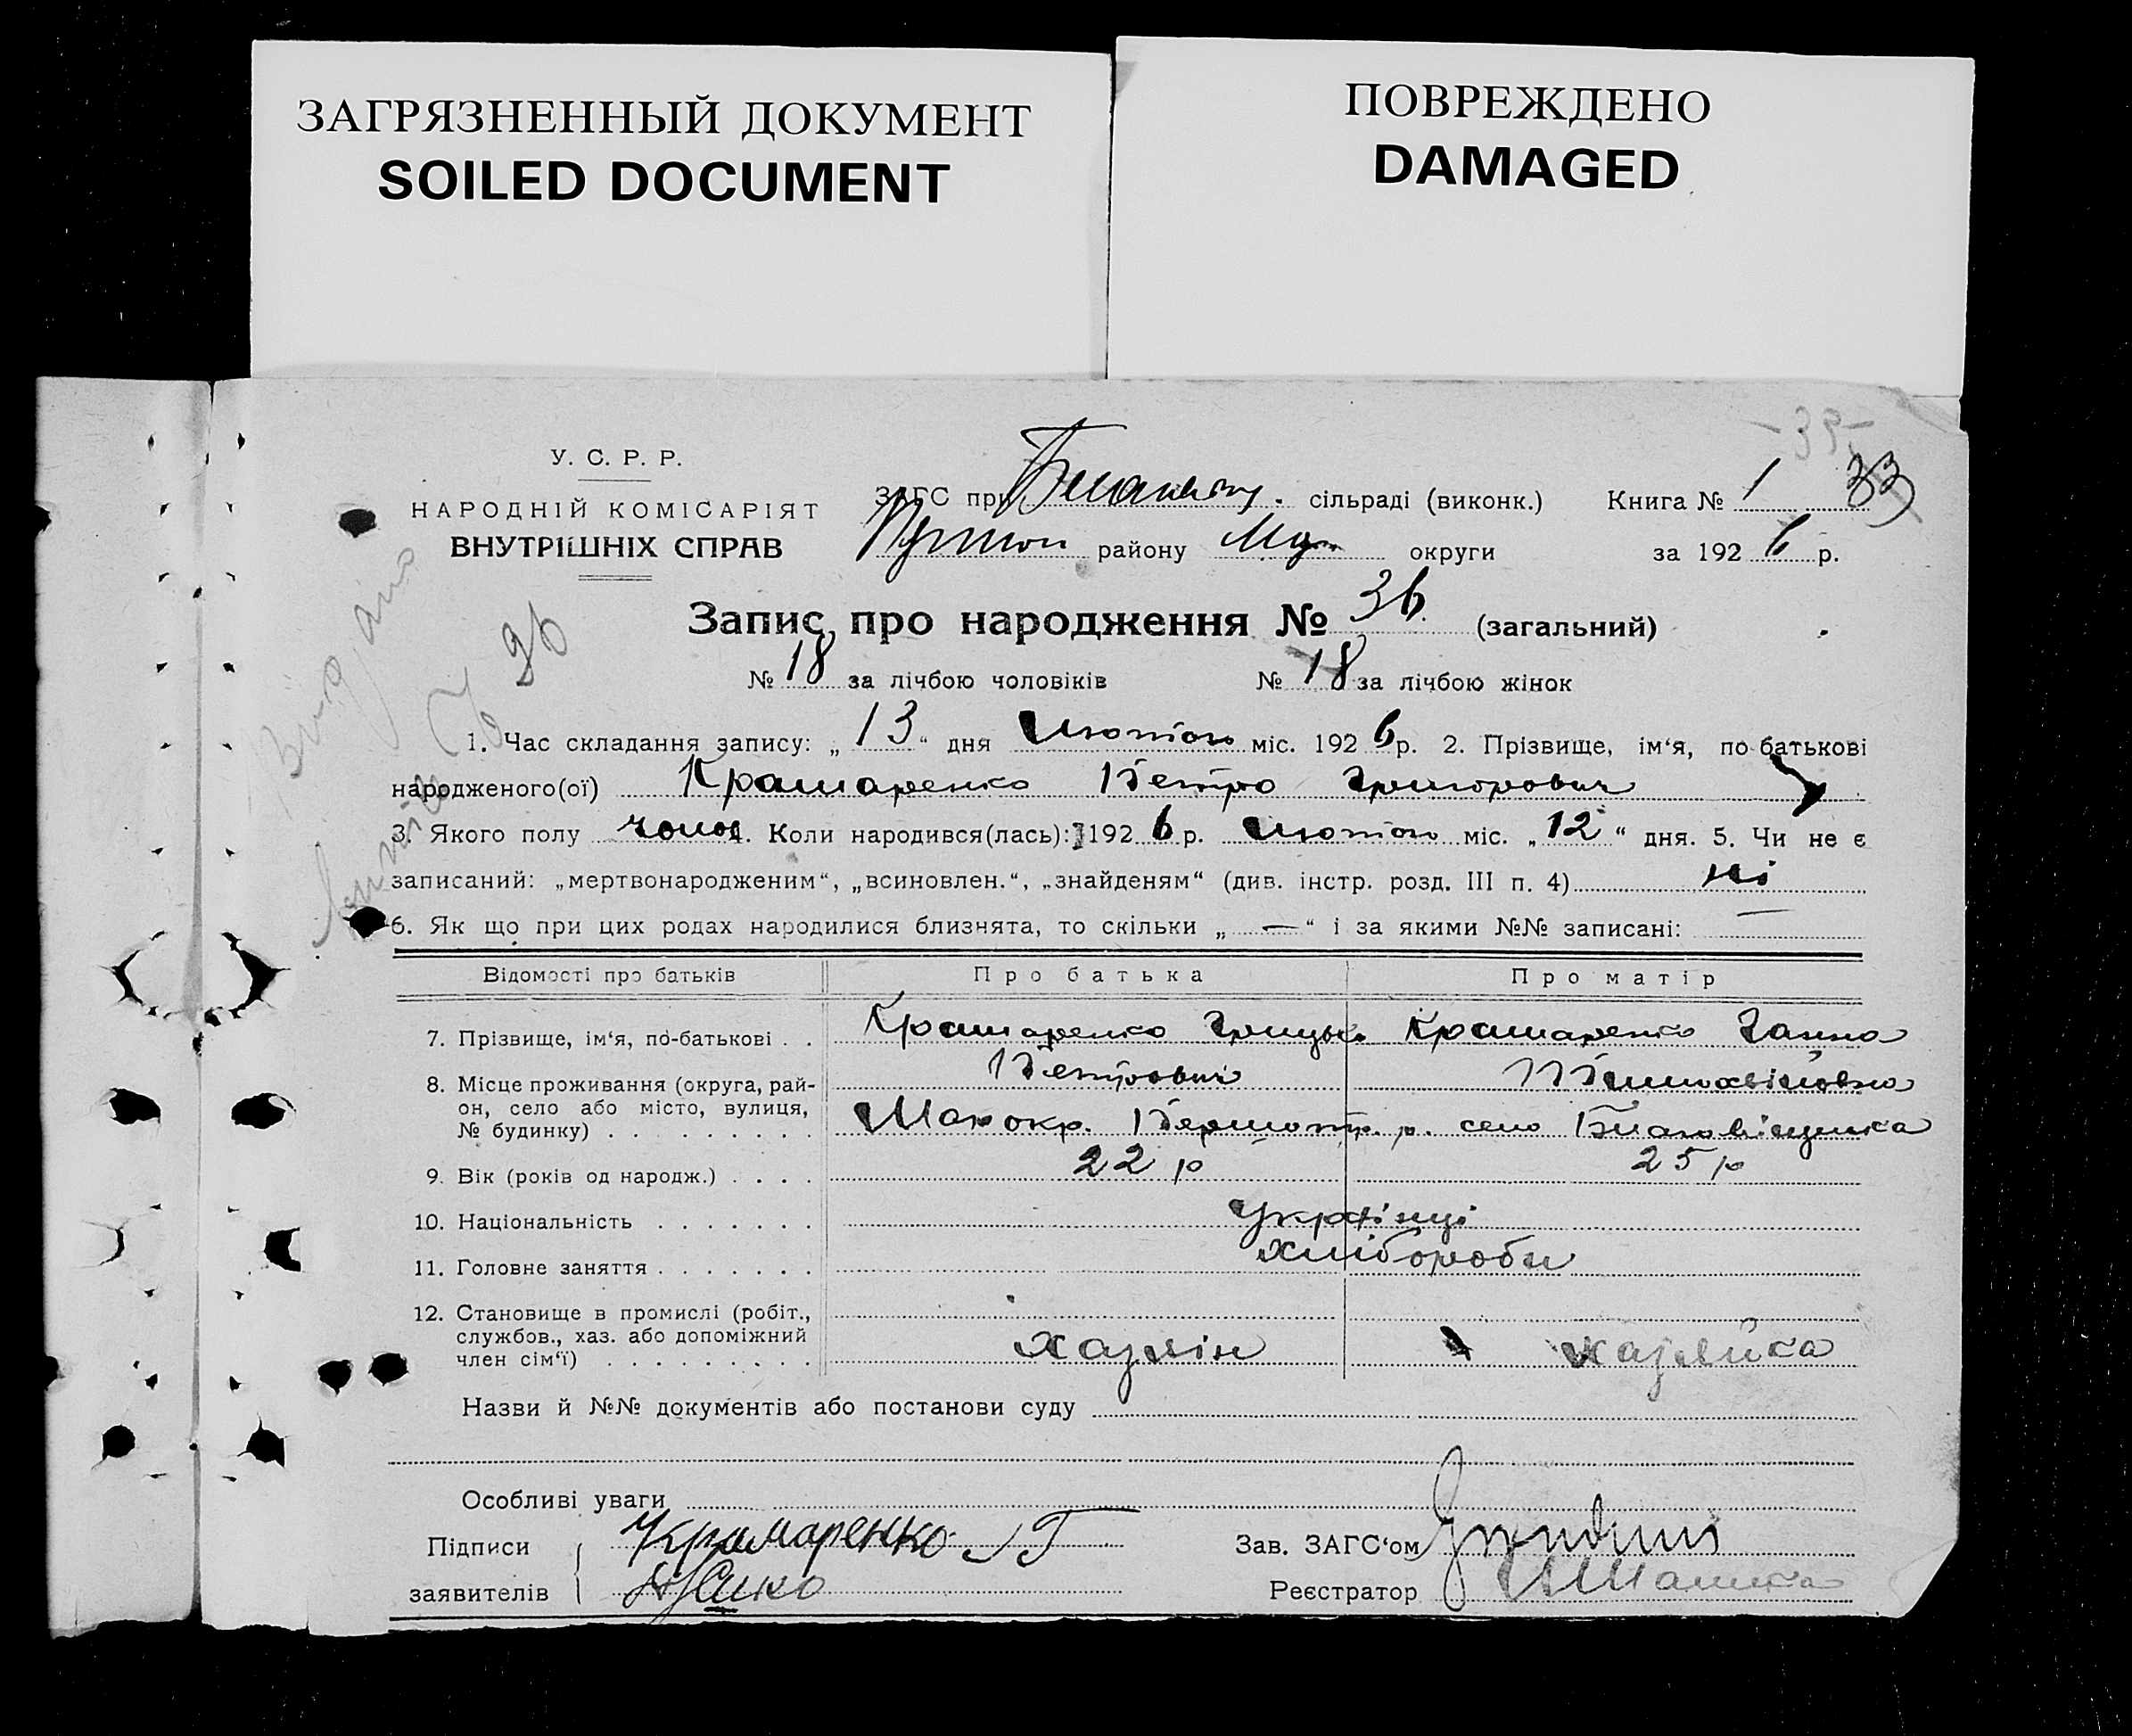 ЗАГРЯЗНЕННЫЙ ДОКУМЕНТ
SOILED DOCUMENT
ПОВРЕЖДЕНО
DAMAGED
-39-
У. С. Р. Р.
НАРОДНІЙ КОМІСАРІЯТ
ВНУТРІШНІХ СПРАВ
ЗАГС при сільраді (виконк.) Книга № 1 33
району округи за 1926 р.
Запис про народження № 36. (загальний)
№ 18 за лічбою чоловіків № 18 за лічбою жінок
1. Час складання запису: „ 13 “ дня лютого міс. 1926 р. 2. Прізвище, ім‘я, по-батькові
народженого(ої) Крамаренко Петро Григорович
3. Якого полу чолов 4. Коли народився(лась): 1926 р. лютого міс. „ 12 “ дня. 5. Чи не є
записаний: „мертвонародженим“, „всиновлен.“, „знайденям“ (див. інстр. розд. III п. 4) ні
6. Як що при цих родах народилися близнята, то скільки „ — “ і за якими №№ записані: —
Відомості про батьків Про батька Про матір
7. Прізвище, ім‘я, по-батькові . . Крамаренко Грицько Крамаренко Ганна
Петрович
8. Місце проживання (округа, рай-
он, село або місто, вулиця,
№ будинку) . . . . . . . . . окр. р. село Благовіщенка
9. Вік (років од народж.) . . . . 22 р 25 р
10. Національність . . . . . . . Українці
11. Головне заняття . . . . . . . хлібороби
12. Становище в промислі (робіт.,
службов., хаз. або допоміжний
член сім‘ї) . . . . . . . . . хазяїн хазяйка
Назви й №№ документів або постанови суду
Особливі уваги
Підписи Крамаренко Г Зав. ЗАГС‘ом
заявителів Реєстратор